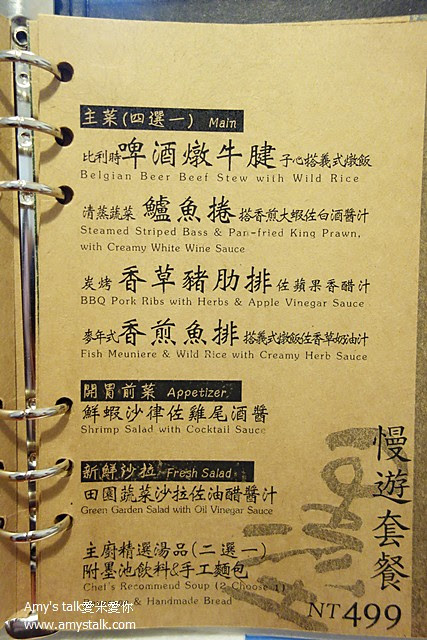 主菜(四選一) Main
比利時啤酒燉牛腱子心搭義式燉飯
Belgian Beer Beef Stew with Wild Rice
清蒸蔬菜鱸魚捲搭香煎大蝦佐白酒醬汁
Steamed Striped Bass & Pan-fried King Prawn,
with Creamy White Wine Sauce
炭烤香草豬肋排佐蘋果香醋汁
BBQ Pork Ribs with Herbs & Apple Vinegar Sauce
麥年式香煎魚排搭義式燉飯佐香草奶油汁
Fish Meuniere & Wild Rice with Creamy Herb Sauce
開胃前菜 Appetizer
鮮蝦沙律佐雞尾酒醬
Shrimp Salad with Cocktail Sauce
新鮮沙拉 Fresh Salad
田園蔬菜沙拉佐油醋醬汁
Green Garden Salad with Oil Vinegar Sauce
主廚精選湯品(二選一)
附墨池飲料&手工麵包
Chef's Recommend Soup (2 Choose 1)
& Handmade Bread
慢遊套餐
NT499
Amy's talk愛米愛你
www.amystalk.com